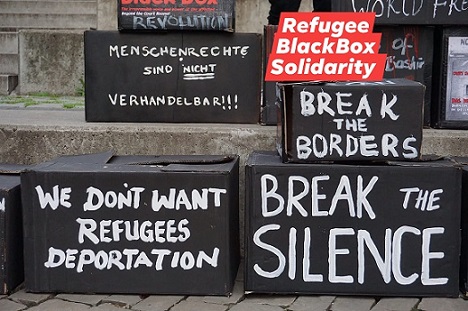 BLACK BOX
REVOLUTION
WORLD FREE
MENSCHENRECHTE
SIND NICHT
VERHANDELBAR!!!
Refugee
BlackBox
Solidarity
OF
BREAK
THE
BORDERS
WE DON'T WANT
REFUGEES
DEPORTATION
BREAK THE
SILENCE